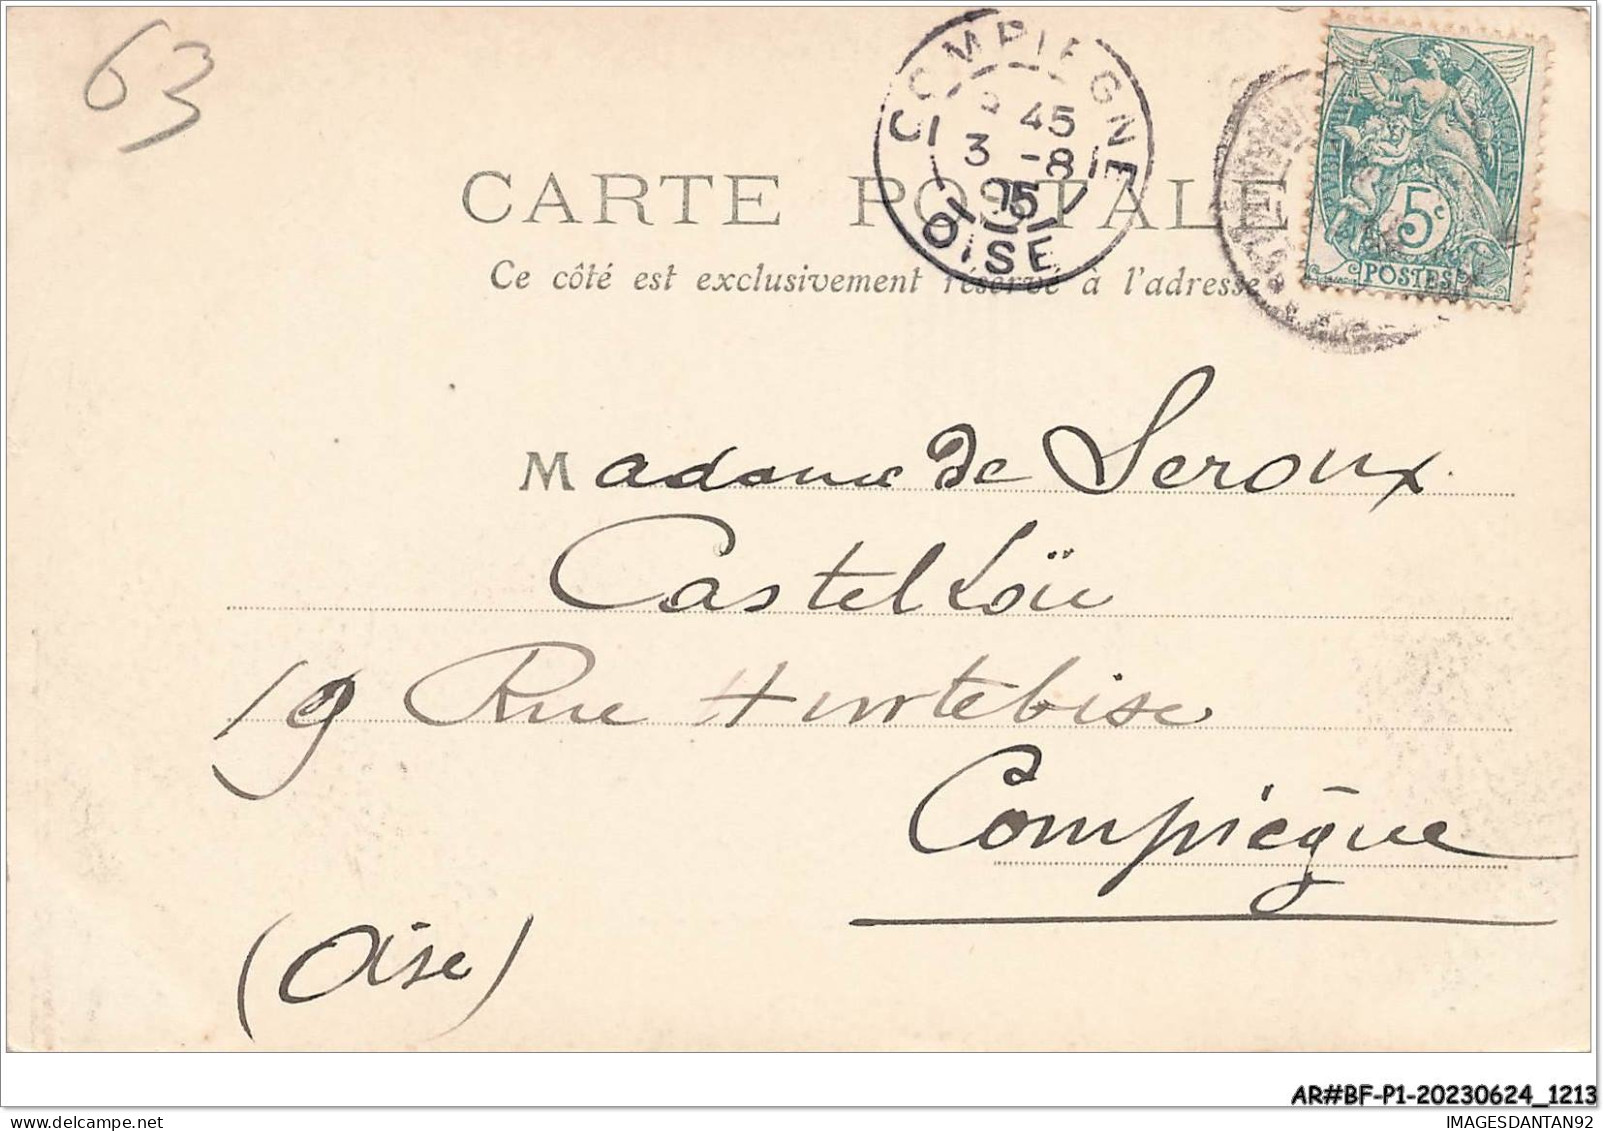 63
COMPIEGNE
45
3 -8
05
OISE
5c
POSTES
CARTE POSTALE
Ce côté est exclusivement réservé à l'adresse
Madame de Seroux
Castel Loïu
19 Rue Hurtebise
Compiègne
(Oise)
AR#BF-P1-20230624_1213
delcampe.net
IMAGESDANTAN92